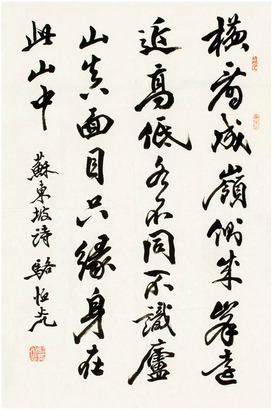 橫看成嶺側成峯遠
近高低各不同不識廬
山真面目只緣身在
此山中
蘇東坡詩 駱恒光